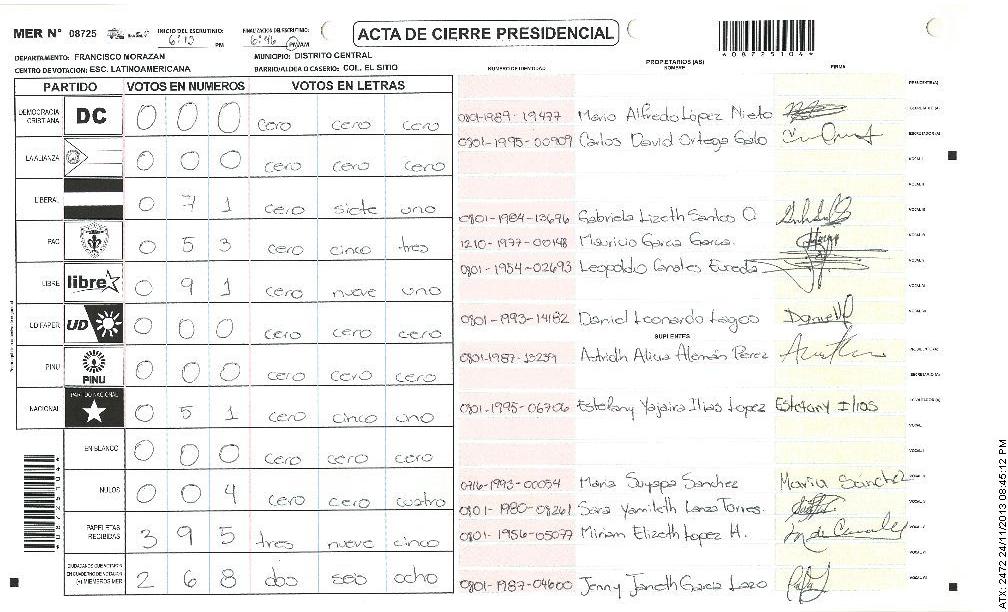 MER N° 08725 INICIO DEL ESCRUTINIO: 6:12 PM FINALIZACION DEL ESCRUTINIO: 6:46 PM/AM
ACTA DE CIERRE PRESIDENCIAL
*08725104*
DEPARTAMENTO: FRANCISCO MORAZAN MUNICIPIO: DISTRITO CENTRAL
CENTRO DE VOTACION: ESC. LATINOAMERICANA BARRIO/ALDEA O CASERIO: COL. EL SITIO
PARTIDO VOTOS EN NUMEROS VOTOS EN LETRAS
DEMOCRACIA CRISTIANA DC 0 0 0 cero cero cero
LA ALIANZA 0 0 0 cero cero cero
LIBERAL 0 7 1 cero siete uno
PAC 0 5 3 cero cinco tres
LIBRE libre 0 9 1 cero nueve uno
UD FAPER UD 0 0 0 cero cero cero
PINU PINU 0 0 0 cero cero cero
NACIONAL PARTIDO NACIONAL 0 5 1 cero cinco uno
EN BLANCO 0 0 0 cero cero cero
NULOS 0 0 4 cero cero cuatro
PAPELETAS RECIBIDAS 3 9 5 tres nueve cinco
CIUDADANOS QUE VOTARON EN CUADERNO DE VOTACION (+) MIEMBROS MER 2 6 8 dos seis ocho
PROPIETARIOS (AS)
NUMERO DE IDENTIDAD NOMBRE FIRMA
PRESIDENTE(A)
0801-1989-19477 Mario Alfredo López Nieto SECRETARIO(A)
0801-1995-00909 Carlos David Ortega Galo ESCRUTADOR(A)
VOCAL I
VOCAL II
0801-1984-13696 Gabriela Lizeth Santos O. VOCAL III
1210-1977-00148 Mauricio Garcia Garcia. VOCAL IV
0801-1954-02693 Leopoldo Canales VOCAL V
VOCAL VI
0801-1993-14182 Daniel Leonardo Lagos Daniel VOCAL VII
SUPLENTES
Astridh Alicia Alemán Pérez PRESIDENTE(A)
SECRETARIO(A)
0801-1995-06706 Estefany Yajaira Ilias Lopez Estefany Ilias ESCRUTADOR(A)
VOCAL I
VOCAL II
0716-1993-00054 Maria Suyapa Sanchez Maria Sánchez VOCAL III
0801-1980-08261 Sara Yamileth Lanza Torres. VOCAL IV
0801-1956-05077 Miriam Elizeth Lopez H. VOCAL V
VOCAL VI
0801-1987-04600 Jenny Janeth Garcia Lazo VOCAL VII
ATX-2472 24/11/2013 08:45:12 PM